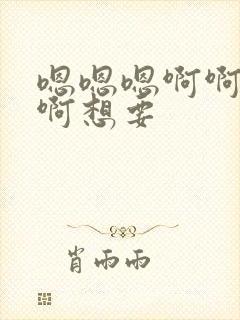 嗯嗯嗯啊啊
啊想要
肖雨雨